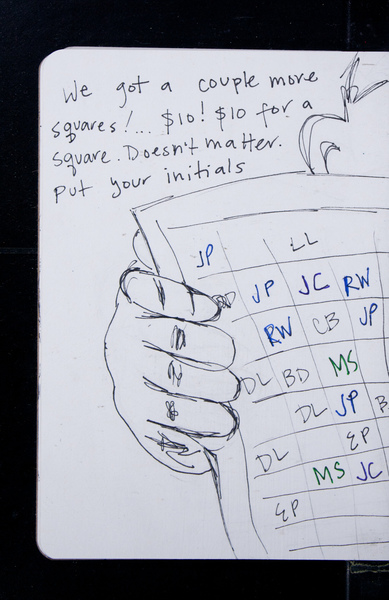 We got a couple more
squares!... $10! $10 for a
square. Doesn't matter.
Put your initials
JP LL
JP JC RW
RW CB JP
DL BD MS
DL JP B
DL EP
MS JC
EP